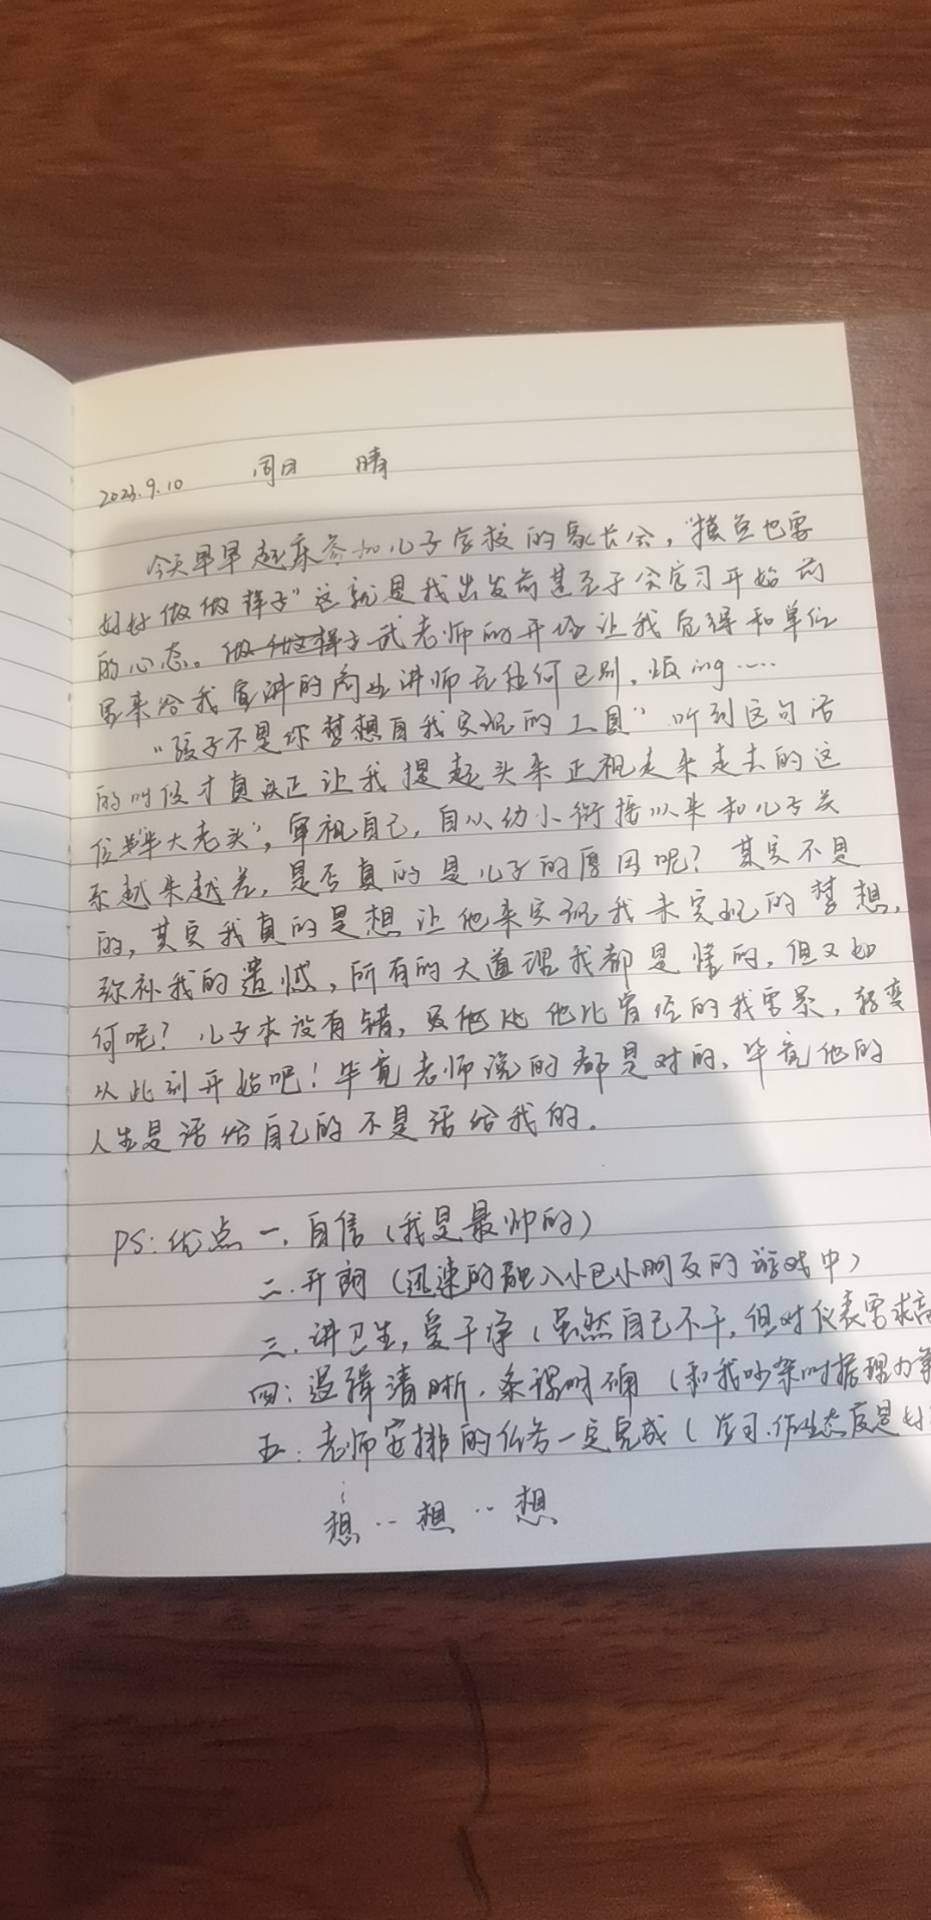 2023.9.10 周日 晴
今天早早起床参加儿子学校的家长会，"摸鱼也要
好好做做样子"这就是我出发前甚至于会学习开始前
的心态。武老师的开场让我觉得和单位
里来给我宣讲的商业讲师无任何区别，烦ing……
"孩子不是你梦想自我实现的工具"听到这句话
的时候才真正让我提起头来正视走来走去的这
位"半大老头"，审视自己，自从幼小衔接以来和儿子关
系越来越差，是否真的是儿子的原因呢？其实不是
的，其实我真的是想让他来实现我未实现的梦想，
弥补我的遗憾，所有的大道理我都是懂的，但又如
何呢？儿子本没有错，他比曾经的我更累，转变
从此刻开始吧！毕竟老师说的都是对的，毕竟他的
人生是活给自己的不是活给我的。
PS：优点 一、自信（我是最帅的）
二、开朗（迅速的融入小区小朋友的游戏中）
三、讲卫生，爱干净（虽然自己不干，但对仪表要求高
四：逻辑清晰，条理明确（和我吵架时据理力争
五：老师安排的任务一定完成（学习、作业态度是好
想‥想‥想